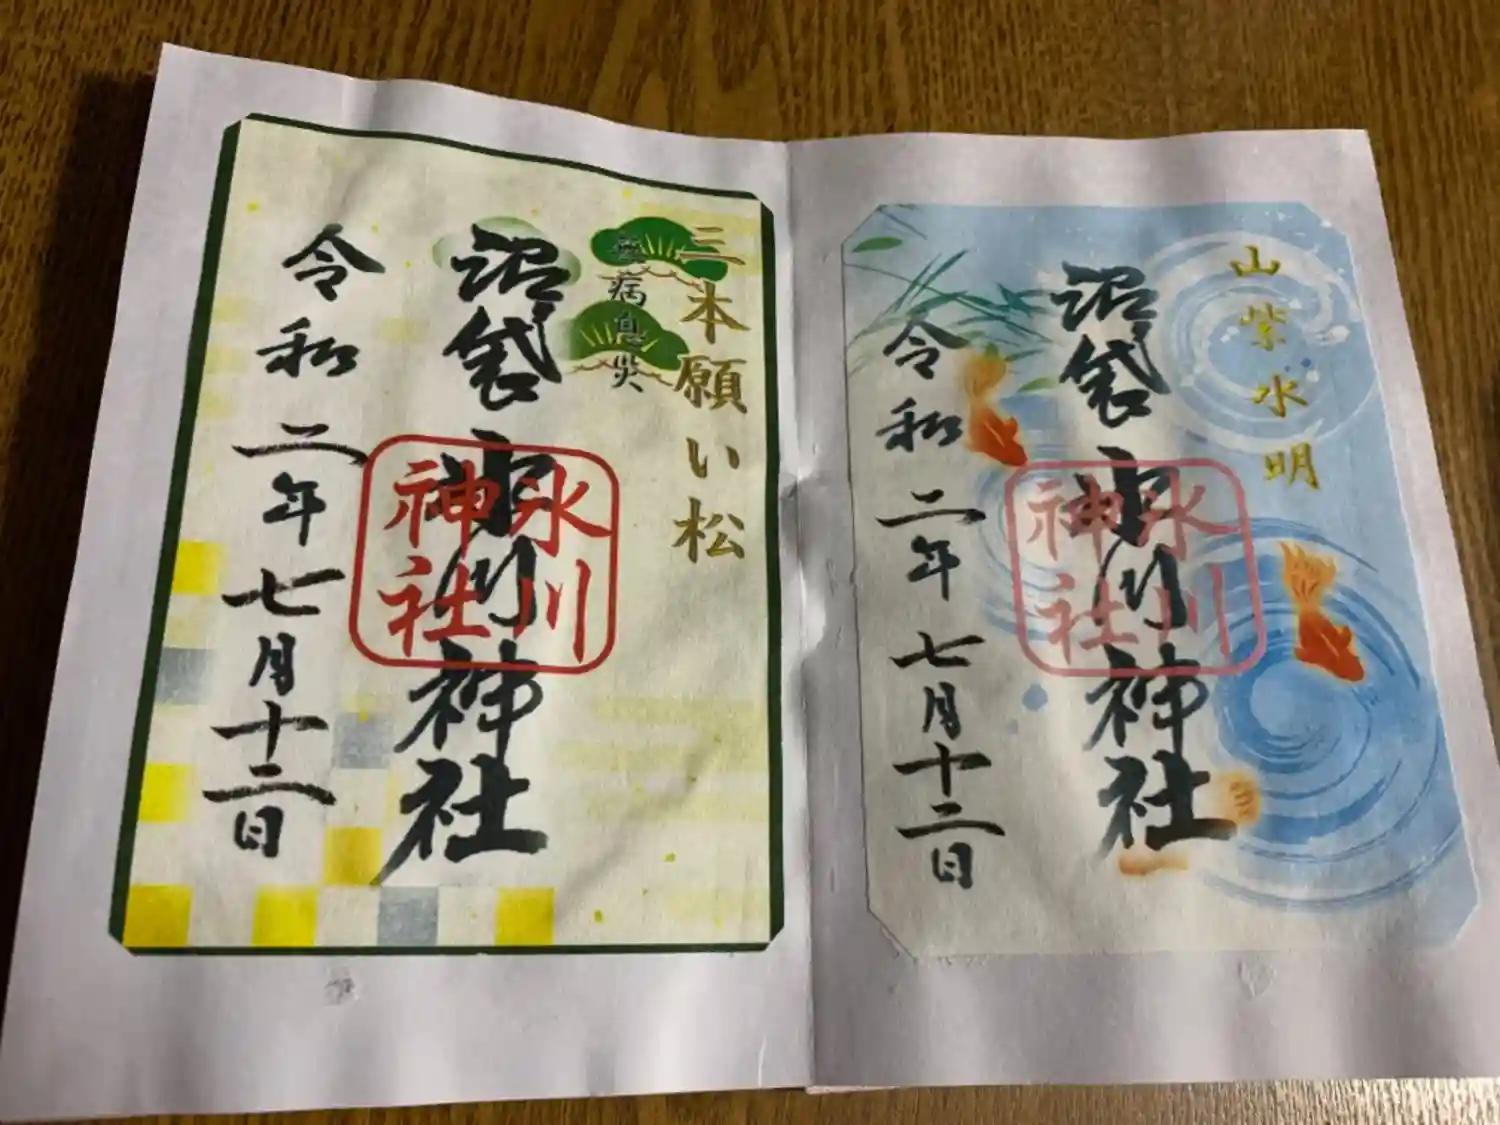 三本願い松
無病息災
沼袋氷川神社
氷川神社
令和二年七月十二日
山紫水明
沼袋氷川神社
氷川神社
令和二年七月十二日